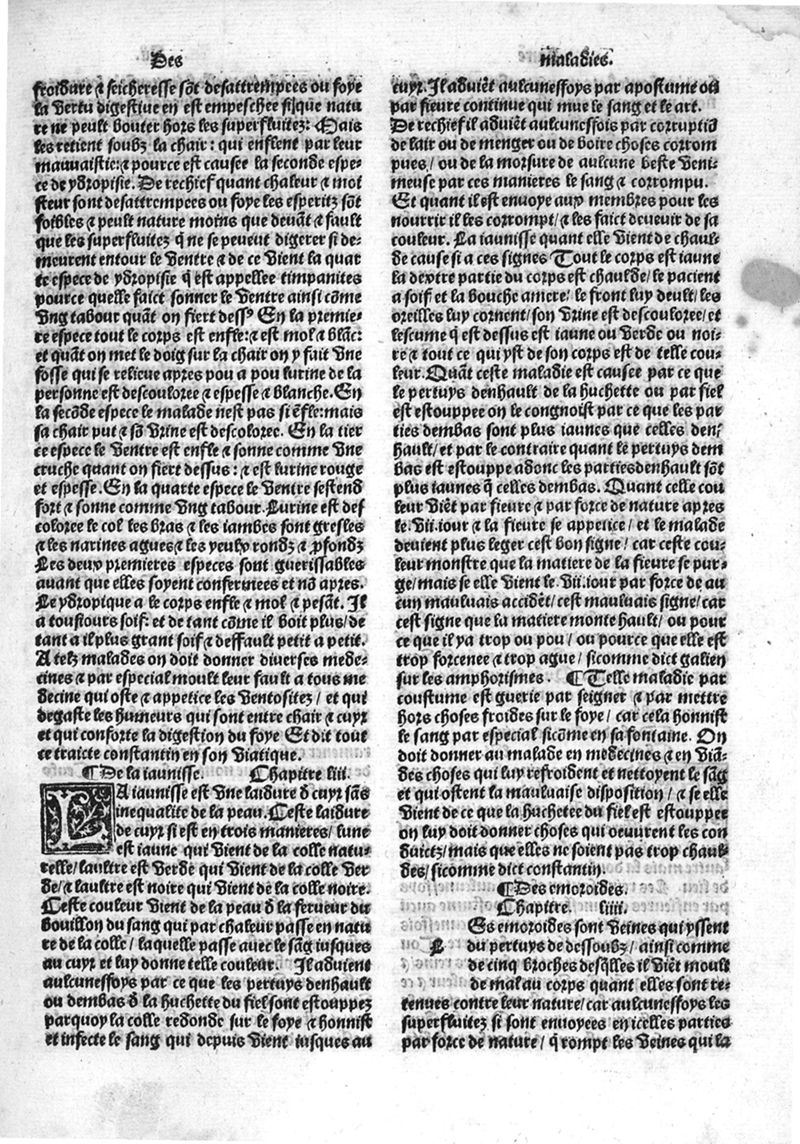 Des maladies.
froidure ⁊ seicheresse sõt desattrempees ou foye
la vertu digestive en est empeschee si que natu
re ne peult bouter hors les superfluitez: Mais
les retient soubz la chair: qui enflent par leur
mauvaistie: ⁊ pource est causee la seconde espe-
ce de ydropisie. De rechief quant chaleur ⁊ moi
steur sont desattrempees ou foye les esperitz sõt
foibles ⁊ peult nature moins que devãt ⁊ fault
que les superfluitez q̃ ne se peuvẽt digerer si de-
meurent entour le ventre ⁊ de ce vient la quar
te espece de ydropisie q̃ est appellee timpanites
pource quelle faict sonner le ventre ainsi cõme
vng tabour quãt on fiert dessꝰ En la premie-
re espece tout le corps est enfle: ⁊ est mol ⁊ blãc:
et quãt on met le doig sur la chair on y fait vne
fosse qui se relieve apres pou a pou lurine de la
personne est descouloree ⁊ espesse ⁊ blanche. En
la secõde espece le malade nest pas si ẽfle: mais
sa chair put ⁊ sõ vrine est descoloree. En la tier
ce espece le ventre est enfle ⁊ sonne comme vne
cruche quant on fiert dessus: ⁊ est lurine rouge
et espesse. En la quarte espece le ventre sestend
fort ⁊ sonne comme vng tabour. Lurine est des
coloree le col les bras ⁊ les iambes sont gresles
⁊ les narines agues ⁊ les yeulx rondz ⁊ ꝓfondz
Les deux premieres especes sont guerissables
avant que elles soyent confermees et nõ apres.
Le ydropique a le corps enfle ⁊ mol ⁊ pesãt. Il
a tousiours soif: et de tant cõme il boit plus/ de
tant a il plus grant soif ⁊ deffault petit a petit.
A telz malades on doit donner diverses mede-
cines ⁊ par especial moult leur fault a tous me
decine qui oste ⁊ appetice les ventositez/ et qui
degaste les humeurs qui sont entre chair ⁊ cuyr
et qui conforte la digestion du foye Et dit tout
ce traicte constantin en son viatique.
¶ De la iaunisse. Chapitre liii.
LA iaunisse est vne laidure d̃ cuyr sãs
inequalite de la peau. Ceste laidure
de cuyr si est en trois manieres/ lune
est iaune qui vient de la colle natu-
relle/ laultre est verde qui vient de la colle ver
de/ ⁊ laultre est noire qui vient de la colle noire.
Ceste couleur vient de la peau d̃ la ferueur du
bouillon du sang qui par chaleur passe en natu
re de la colle/ laquelle passe avec le sãg iusques
au cuyr et luy donne telle couleur. Il advient
aulcunessoys par ce que les pertuys denhault
ou dembas d̃ la huchette du fiel sont estouppez
parquoy la colle redonde sur le foye ⁊ honnist
et infecte le sang qui depuis vient iusques au
cuyr. Il advièt aulcunessoys par apostume ou
par fievre continue qui mue le sang et le art.
De rechief il adviẽt aulcunessois par corruptiõ
de lair ou de menger ou de boire choses corrom
pues/ ou de la morsure de aulcune beste veni-
meuse par ces manieres le sang ⁊ corrompu.
Et quant il est envoye aux membres pour les
nourrir il les corrompt/ ⁊ les faict devenir de sa
couleur. La iaunisse quant elle vient de chaul-
de cause si a ces signes Tout le corps est iaune
la dextre partie du corps est chaulde/ le pacient
a soif et la bouche amere/ le front luy deult/ les
oreilles luy cornent/ son vrine est descouloree/ et
lescume q̃ est dessus est iaune ou verde ou noi-
re ⁊ tout ce qui yst de son corps est de telle cou-
leur. Quãt ceste maladie est causee par ce que
le pertuys denhault de la huchette ou par fiel
est estouppee on le congnoist par ce que les par
ties dembas sont plus iaunes que celles den-
hault/ et par le contraire quant le pertuys dem
bas est estouppe adonc les parties denhault sõt
plus iaunes q̃ celles dembas. Quant celle cou
leur viẽt par fievre ⁊ par force de nature apres
le. vii. iour ⁊ la fievre se appetice/ et le malade
devient plus leger cest bon signe/ car ceste cou-
leur monstre que la matiere de la fievre se pur-
ge/ mais se elle vient le. vii. iour par force de au
cun maulvais accidẽt/ cest maulvais signe/ car
cest signe que la matiere monte hault/ ou pour
ce que il y a trop ou pou/ ou pource que elle est
trop forcenee ⁊ trop ague/ sicomme dict galien
sur les amphorismes. ¶ Telle maladie par
coustume est guerie par seigner ⁊ par mettre
hors choses froides sur le foye/ car cela honnist
le sang par especial sicõme en sa fontaine. On
doit donner au malade en medecines ⁊ en viã-
des choses qui luy refroident et nettoyent le sãg
et qui ostent la maulvaise disposition/ ⁊ se elle
vient de ce que la huchette du fiel est estoupper
on luy doit donner choses qui oeuvrent les con
duictz/ mais que elles ne soient pas trop chaul-
des/ sicomme dict constantin.
¶ Des emoroides.
Chapitre. liiii.
LEs emoroides sont veines qui yssent
du pertuys de dessoubz/ ainsi comme
de cinq broches desq̃lles il viẽt moult
de mal au corps quant elles sont re-
tenues contre leur nature/ car aulcunessoys les
superfluitez si sont envoyees en icelles parties
par force de nature/ q̃ rompt les veines qui la